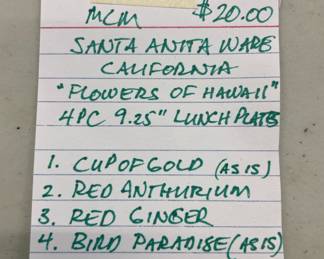 MCM $20.00
SANTA ANITA WARE
CALIFORNIA
"FLOWERS OF HAWAII"
4PC 9.25" LUNCH PLATES
1. CUP OF GOLD (AS IS)
2. RED ANTHURIUM
3. RED GINGER
4. BIRD PARADISE (AS IS)